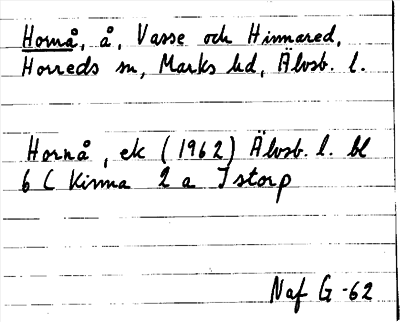 Hornå, å, Vasse och Hinnared,
Horreds sn, Marks hd, Älvsb. l.
Hornå, ek (1962) Älvsb. l. bl
6 C Kinna 2 a Istorp
Naf G -62